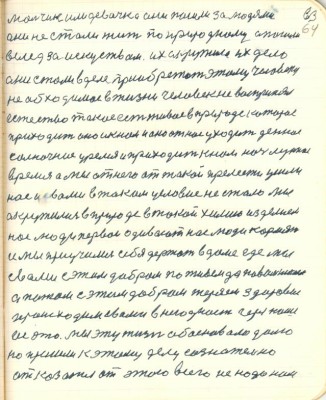 мальчик или девочка они пошли за людями 63
они не стали жить по природному а пошли 64
вслед за искуством. их окружило их дело
они стали в деле приобретать этому человеку
необходимое в жизни человеческое
естество такое есть живое в природе которое
приходит оно к нам и оно от нас уходит денное
солнечное время и приходит к нам ночь лунное
время а мы от него от такой прелести ушли
нас с вами в таком условие не стало мы
окружились в природе в такой химию изделием
нас люди первое одивают нас люди кормят
и мы приучили себя держать в доме где мы
с вами с этим добром по
а потом с этим добром теряем здоровье
приходим с вами в негодность
все это. мы эту жизнь обосновали долго
но пришли к этому делу сознательно
отказались от этого всего не надо нам